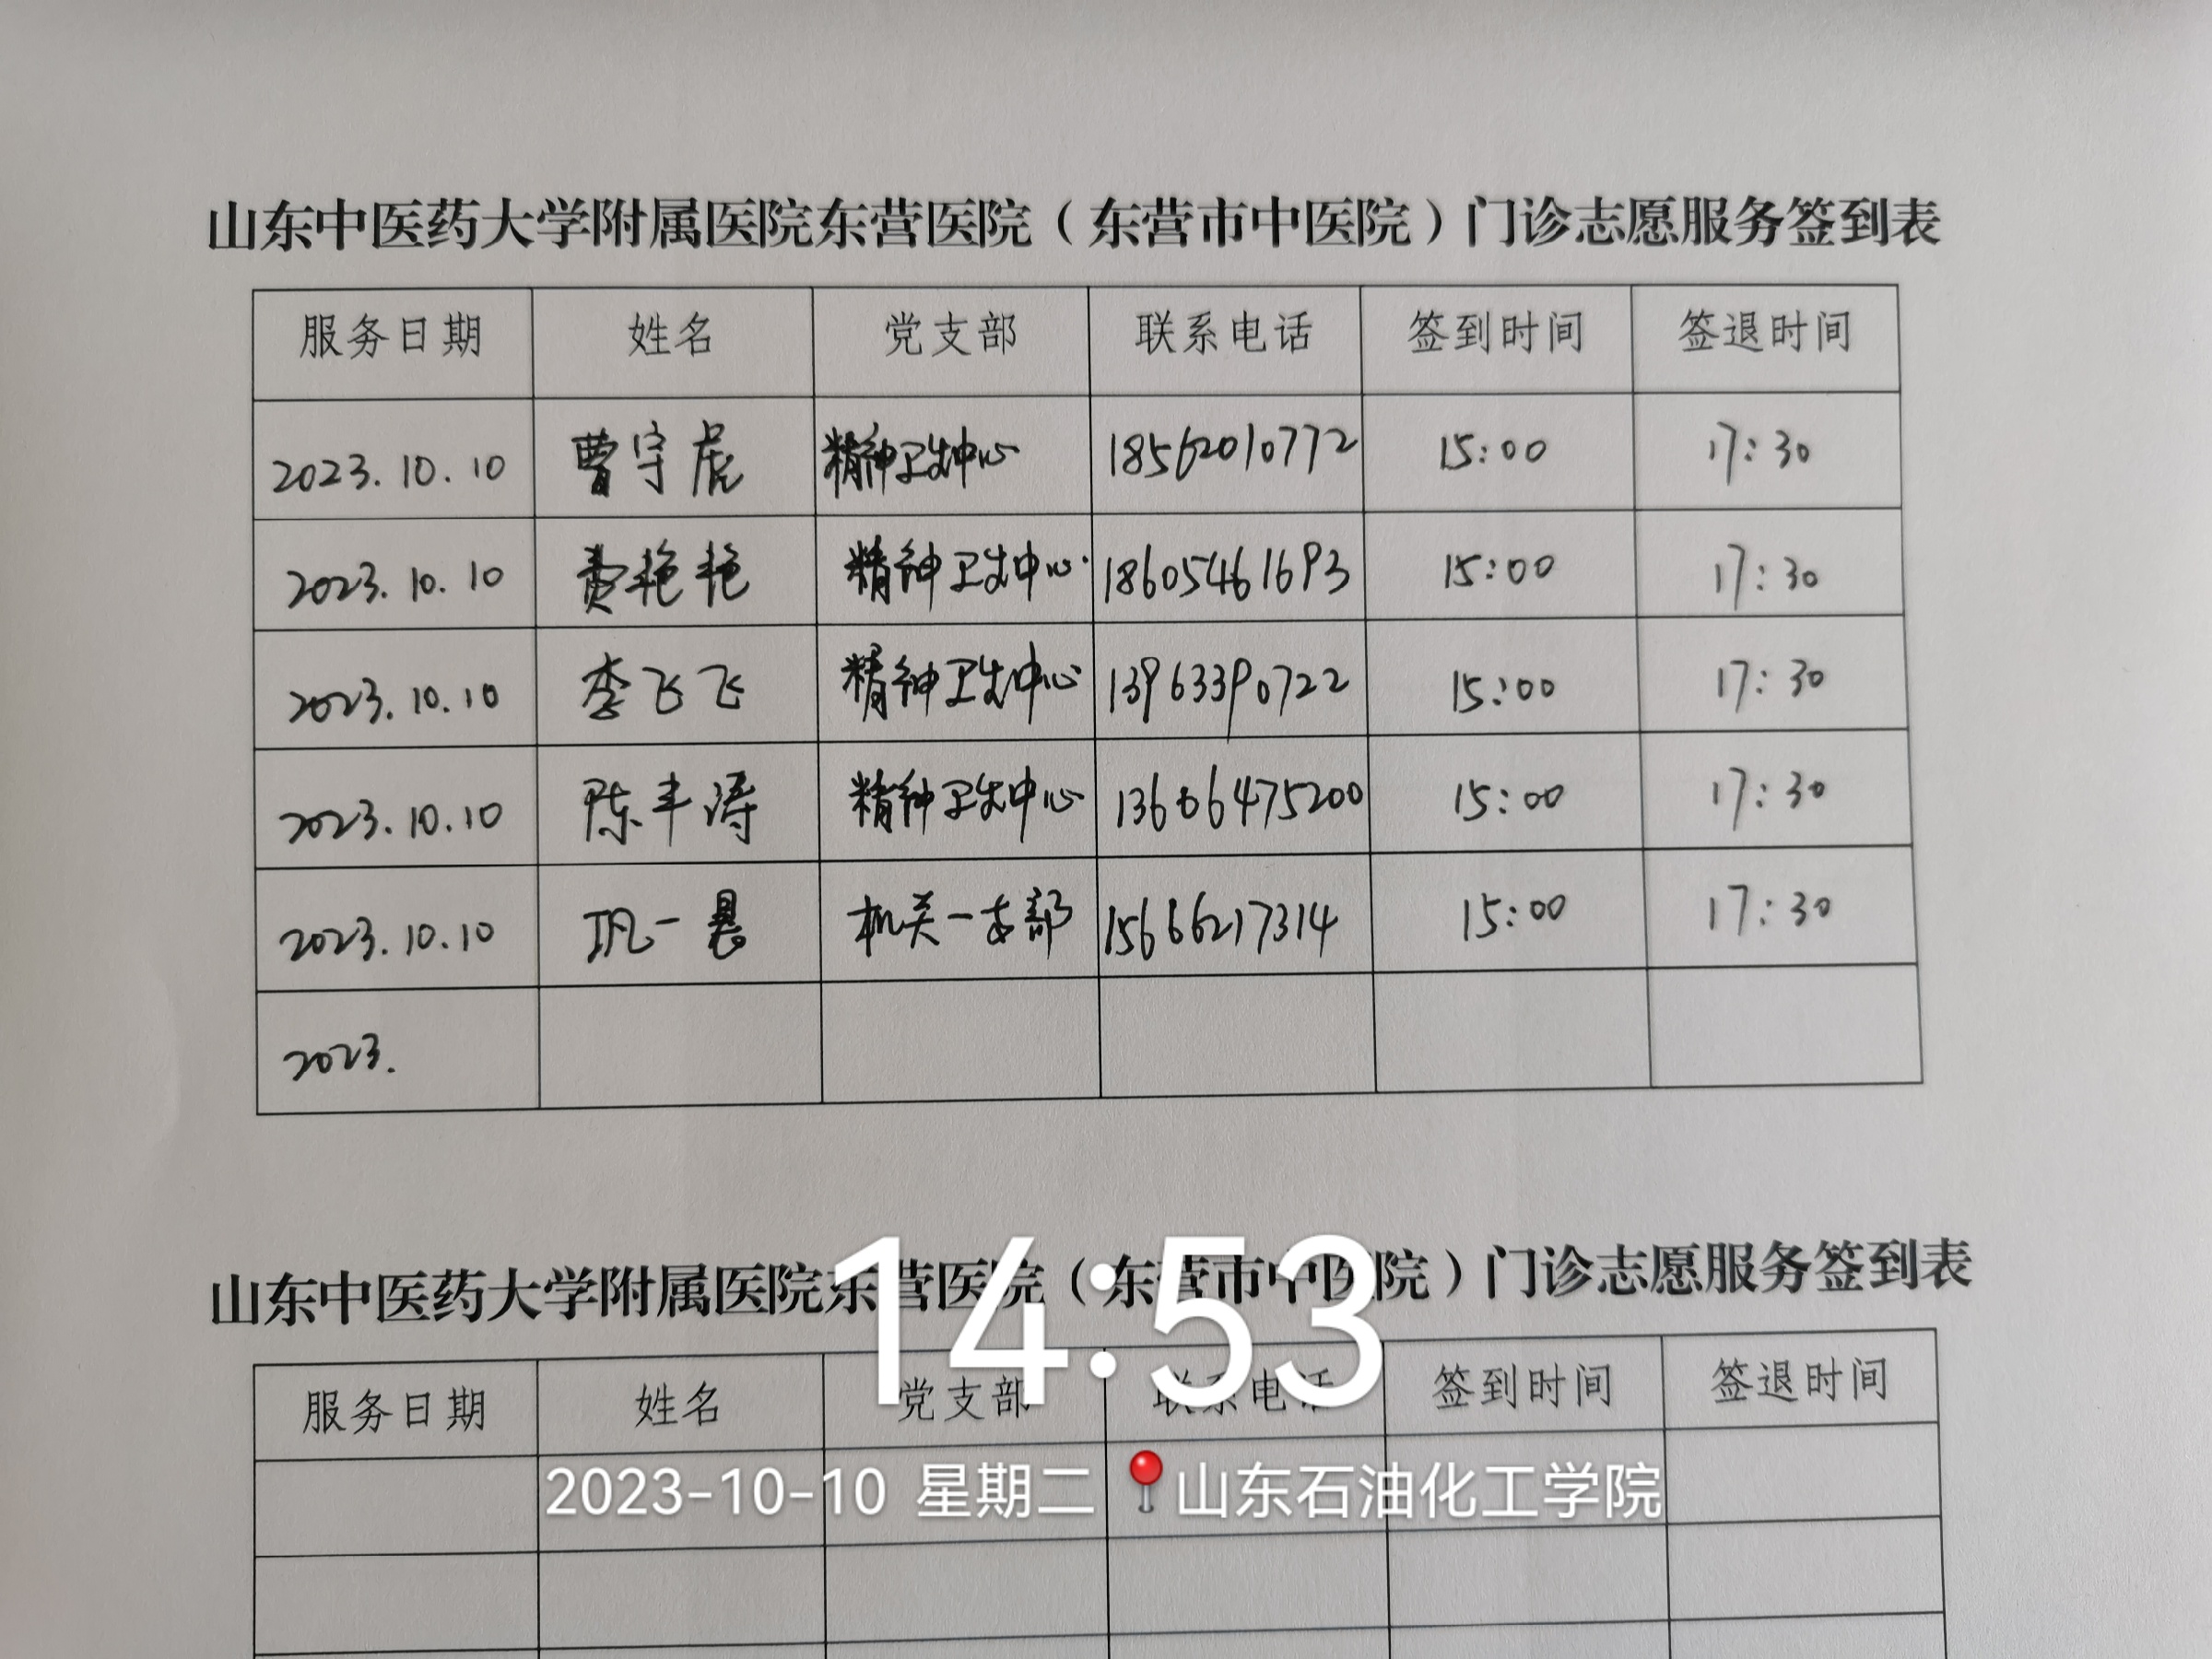 山东中医药大学附属医院东营医院（东营市中医院）门诊志愿服务签到表
服务日期 姓名 党支部 联系电话 签到时间 签退时间
2023.10.10 曹守虎 精神卫生中心 18562010772 15:00 17:30
2023.10.10 费艳艳 精神卫生中心 18605461693 15:00 17:30
2023.10.10 李飞飞 精神卫生中心 13963390722 15:00 17:30
2023.10.10 陈丰涛 精神卫生中心 13606475200 15:00 17:30
2023.10.10 巩一 机关一支部 15666217314 15:00 17:30
2023.
山东中医药大学附属医院东营医院（东营市中医院）门诊志愿服务签到表
14:53
服务日期 姓名 党支部 联系电话 签到时间 签退时间
2023-10-10 星期二 山东石油化工学院